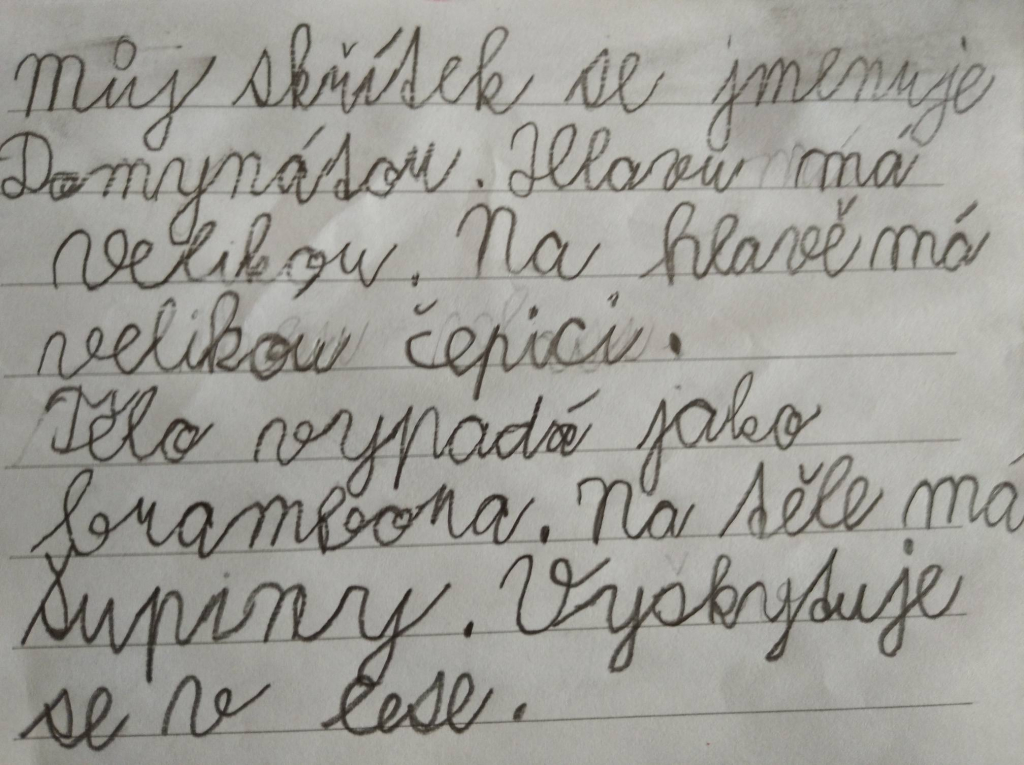 můj skřítek se jmenuje
Domynátou. Hlavu má
velikou. Na hlavě má
velikou čepici.
Tělo vypadá jako
brambora. Na těle má
šupiny. Vyskytuje
se v lese.